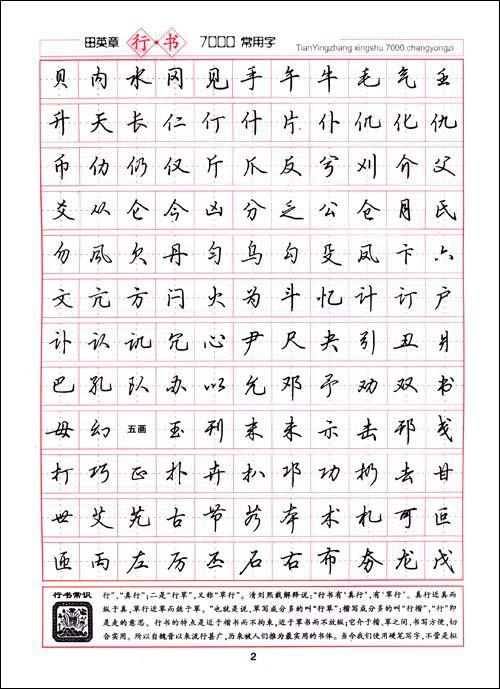 田英章 行·书 7000 常用字
TianYingzhang xingshu 7000 changyongzi
贝 内 水 冈 见 手 午 牛 毛 气 壬
升 夭 长 仁 仃 什 片 仆 仉 化 仇
币 仂 仍 仅 斤 爪 反 兮 刈 介 父
爻 从 仑 今 凶 分 乏 公 仓 月 氏
勿 风 欠 丹 匀 乌 勾 殳 凤 卞 六
文 亢 方 闩 火 为 斗 忆 计 订 户
讣 认 讥 冗 心 尹 尺 夬 引 丑 爿
巴 孔 队 办 以 允 邓 予 劝 双 书
毋 幻 五画 玉 刊 未 末 示 击 邗 戋
打 巧 正 扑 卉 扒 邛 功 扔 去 甘
世 艾 艽 古 节 艿 本 术 札 可 叵
匝 丙 左 厉 丕 石 右 布 夯 龙 戊
行书常识
行”、“真行”;二是“行草”,又称“草行”。清刘熙载解释说:“行书有‘真行’,有‘草行’。真行近真而
纵于真,草行近草而敛于草。”也就是说,草写成分多的叫“行草”;楷写成分多的叫“行楷”,“行”即
是走的意思。行书的特点是近于楷书而不拘束,近于草书而不放纵;它介于楷、草之间,书写方便,切
合实用。所以自魏晋以来流行甚广,历来被人们推为最实用的书体。当今我们使用硬笔写字,不管是拟
2